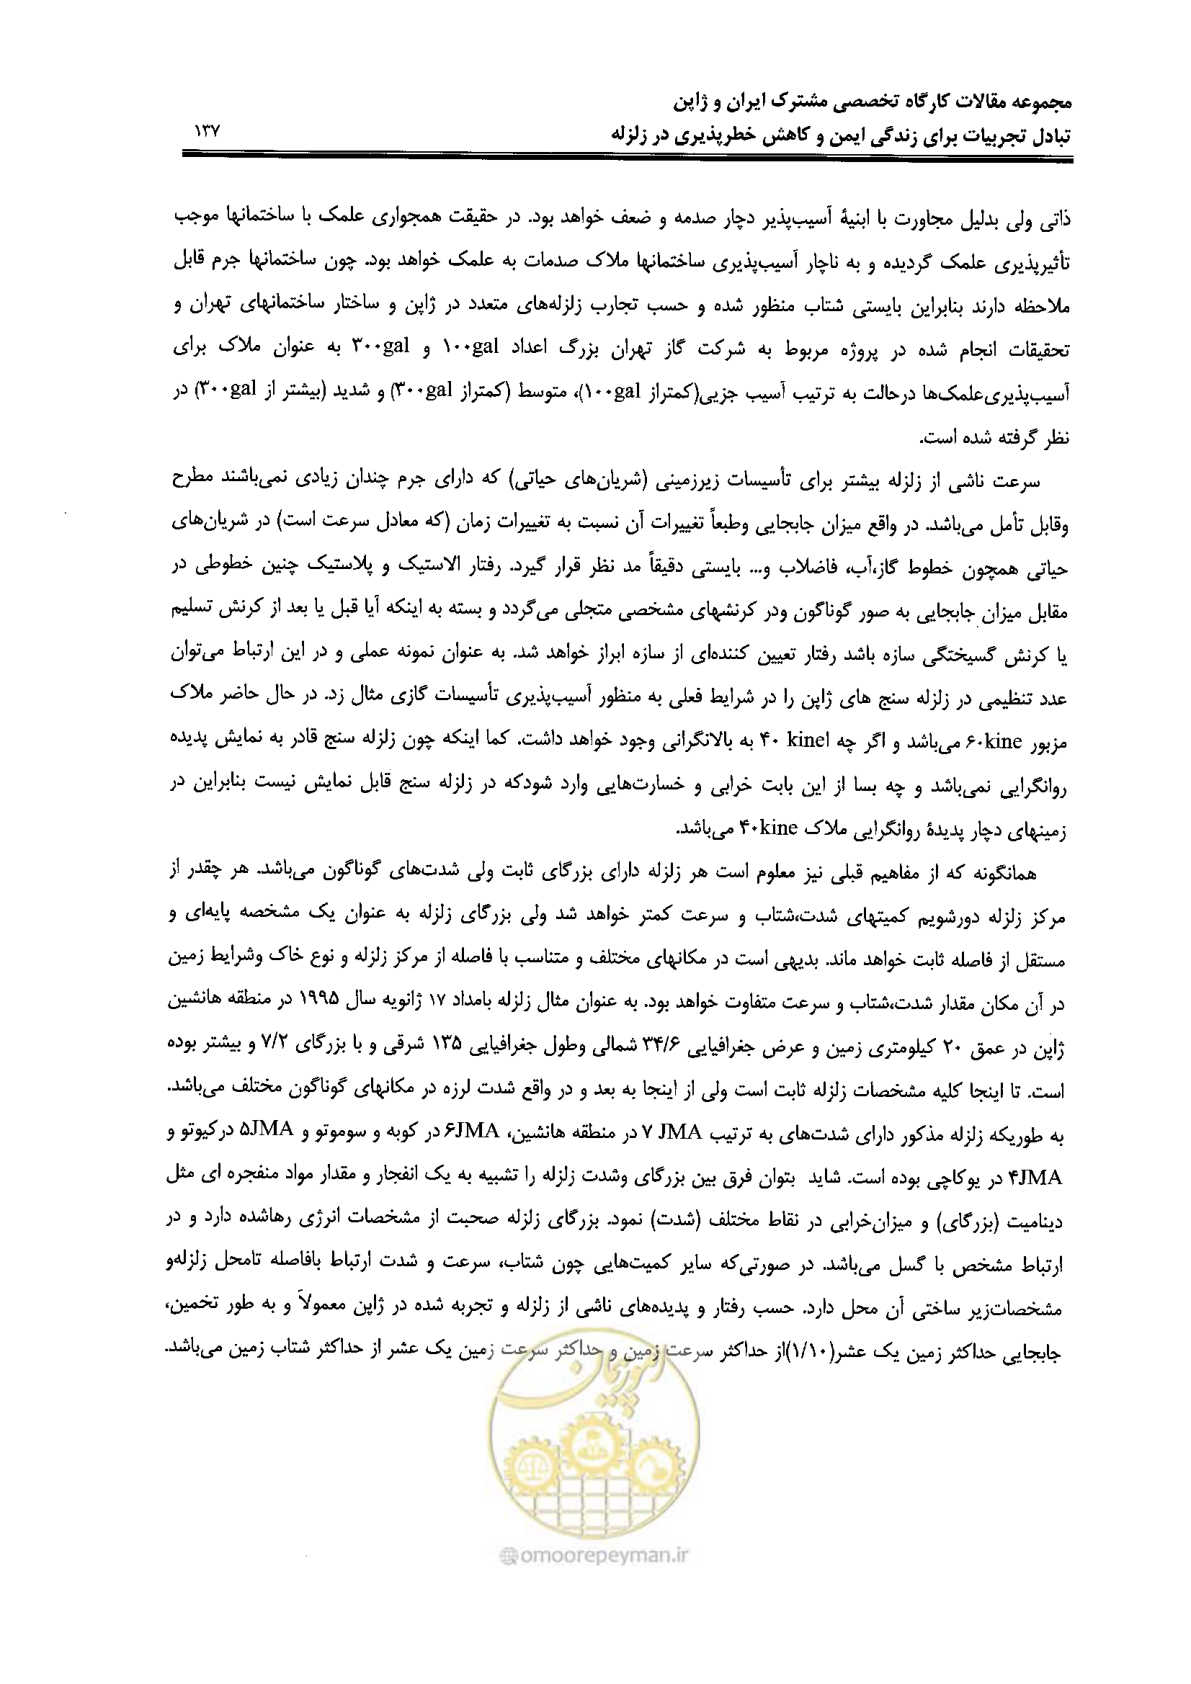 مجموعه مقالات کارگاه تخصصی مشترک ایران و ژاپن
تبادل تجربیات برای زندگی ایمن و کاهش خطرپذیری در زلزله ۱۳۷
ذاتی ولی بدلیل مجاورت با ابنیهٔ آسیب‌پذیر دچار صدمه و ضعف خواهد بود. در حقیقت همجواری علمک با ساختمانها موجب
تأثیرپذیری علمک گردیده و به ناچار آسیب‌پذیری ساختمانها ملاک صدمات به علمک خواهد بود. چون ساختمانها جرم قابل
ملاحظه دارند بنابراین بایستی شتاب منظور شده و حسب تجارب زلزله‌های متعدد در ژاپن و ساختار ساختمانهای تهران و
تحقیقات انجام شده در پروژه مربوط به شرکت گاز تهران بزرگ اعداد ۱۰۰gal و ۳۰۰gal به عنوان ملاک برای
آسیب‌پذیری‌علمک‌ها درحالت به ترتیب آسیب جزیی(کمتراز ۱۰۰gal)، متوسط (کمتراز ۳۰۰gal) و شدید (بیشتر از ۳۰۰gal) در
نظر گرفته شده است.
سرعت ناشی از زلزله بیشتر برای تأسیسات زیرزمینی (شریان‌های حیاتی) که دارای جرم چندان زیادی نمی‌باشند مطرح
وقابل تأمل می‌باشد. در واقع میزان جابجایی وطبعاً تغییرات آن نسبت به تغییرات زمان (که معادل سرعت است) در شریان‌های
حیاتی همچون خطوط گاز،آب، فاضلاب و... بایستی دقیقاً مد نظر قرار گیرد. رفتار الاستیک و پلاستیک چنین خطوطی در
مقابل میزان جابجایی به صور گوناگون ودر کرنشهای مشخصی متجلی می‌گردد و بسته به اینکه آیا قبل یا بعد از کرنش تسلیم
یا کرنش گسیختگی سازه باشد رفتار تعیین کننده‌ای از سازه ابراز خواهد شد. به عنوان نمونه عملی و در این ارتباط می‌توان
عدد تنظیمی در زلزله سنج های ژاپن را در شرایط فعلی به منظور آسیب‌پذیری تأسیسات گازی مثال زد. در حال حاضر ملاک
مزبور ۶۰kine می‌باشد و اگر چه از ۴۰ kine به بالانگرانی وجود خواهد داشت. کما اینکه چون زلزله سنج قادر به نمایش پدیده
روانگرایی نمی‌باشد و چه بسا از این بابت خرابی و خسارت‌هایی وارد شودکه در زلزله سنج قابل نمایش نیست بنابراین در
زمینهای دچار پدیدهٔ روانگرایی ملاک ۴۰kine می‌باشد.
همانگونه که از مفاهیم قبلی نیز معلوم است هر زلزله دارای بزرگای ثابت ولی شدت‌های گوناگون می‌باشد. هر چقدر از
مرکز زلزله دورشویم کمیتهای شدت،شتاب و سرعت کمتر خواهد شد ولی بزرگای زلزله به عنوان یک مشخصه پایه‌ای و
مستقل از فاصله ثابت خواهد ماند. بدیهی است در مکانهای مختلف و متناسب با فاصله از مرکز زلزله و نوع خاک وشرایط زمین
در آن مکان مقدار شدت،شتاب و سرعت متفاوت خواهد بود. به عنوان مثال زلزله بامداد ۱۷ ژانویه سال ۱۹۹۵ در منطقه هانشین
ژاپن در عمق ۲۰ کیلومتری زمین و عرض جغرافیایی ۳۴/۶ شمالی وطول جغرافیایی ۱۳۵ شرقی و با بزرگای ۷/۲ و بیشتر بوده
است. تا اینجا کلیه مشخصات زلزله ثابت است ولی از اینجا به بعد و در واقع شدت لرزه در مکانهای گوناگون مختلف می‌باشد.
به طوریکه زلزله مذکور دارای شدت‌های به ترتیب ۷ JMA در منطقه هانشین، ۶JMA در کوبه و سوموتو و ۵JMA درکیوتو و
۴JMA در یوکاچی بوده است. شاید بتوان فرق بین بزرگای وشدت زلزله را تشبیه به یک انفجار و مقدار مواد منفجره ای مثل
دینامیت (بزرگای) و میزان‌خرابی در نقاط مختلف (شدت) نمود. بزرگای زلزله صحبت از مشخصات انرژی رهاشده دارد و در
ارتباط مشخص با گسل می‌باشد. در صورتی‌که سایر کمیت‌هایی چون شتاب، سرعت و شدت ارتباط بافاصله تامحل زلزله‌و
مشخصات‌زیر ساختی آن محل دارد. حسب رفتار و پدیده‌های ناشی از زلزله و تجربه شده در ژاپن معمولاً و به طور تخمین،
جابجایی حداکثر زمین یک عشر(۱/۱۰)از حداکثر سرعت زمین و حداکثر سرعت زمین یک عشر از حداکثر شتاب زمین می‌باشد.
امور پیمان
@omoorepeyman.ir